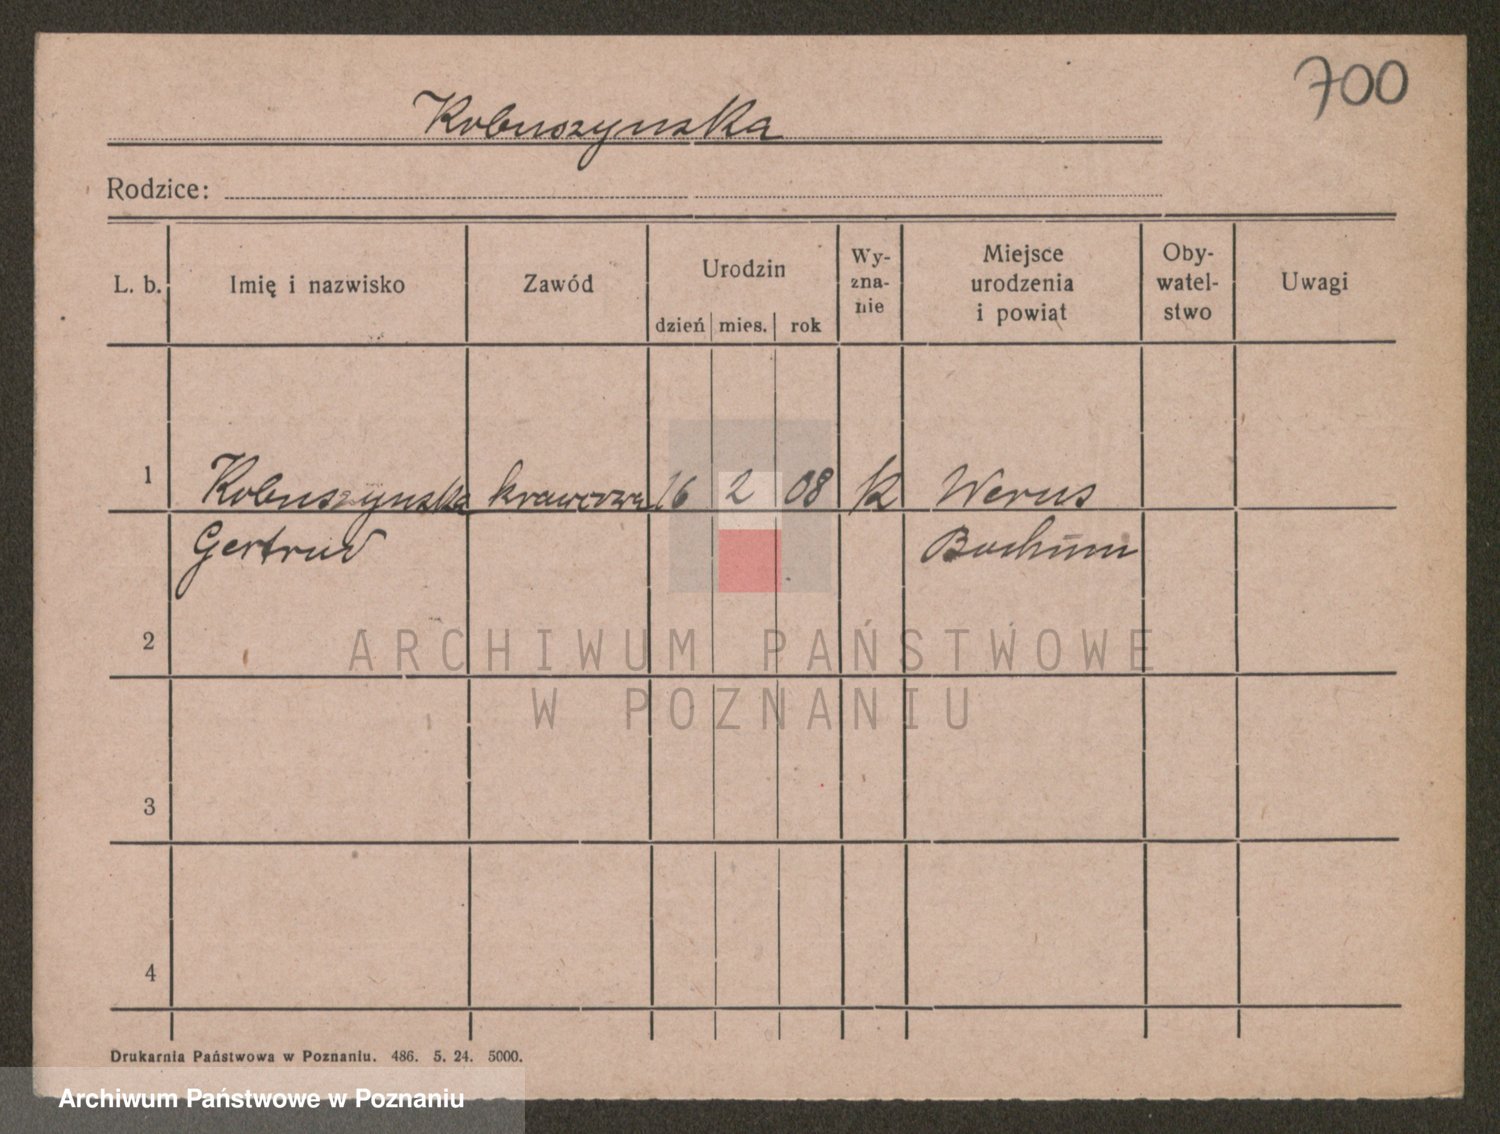 700
Kobuszynska
Rodzice:
L. b.
Imię i nazwisko
Zawód
Urodzin
dzień
mies.
rok
Wy-
zna-
nie
Miejsce
urodzenia
i powiat
Oby-
watel-
stwo
Uwagi
1
Kobuszynska
krawcowa
16
2
08
k
Werus
Gertrud
Bochum
2
ARCHIWUM PAŃSTWOWE
W POZNANIU
3
4
Drukarnia Państwowa w Poznaniu. 486. 5. 24. 5000.
Archiwum Państwowe w Poznaniu